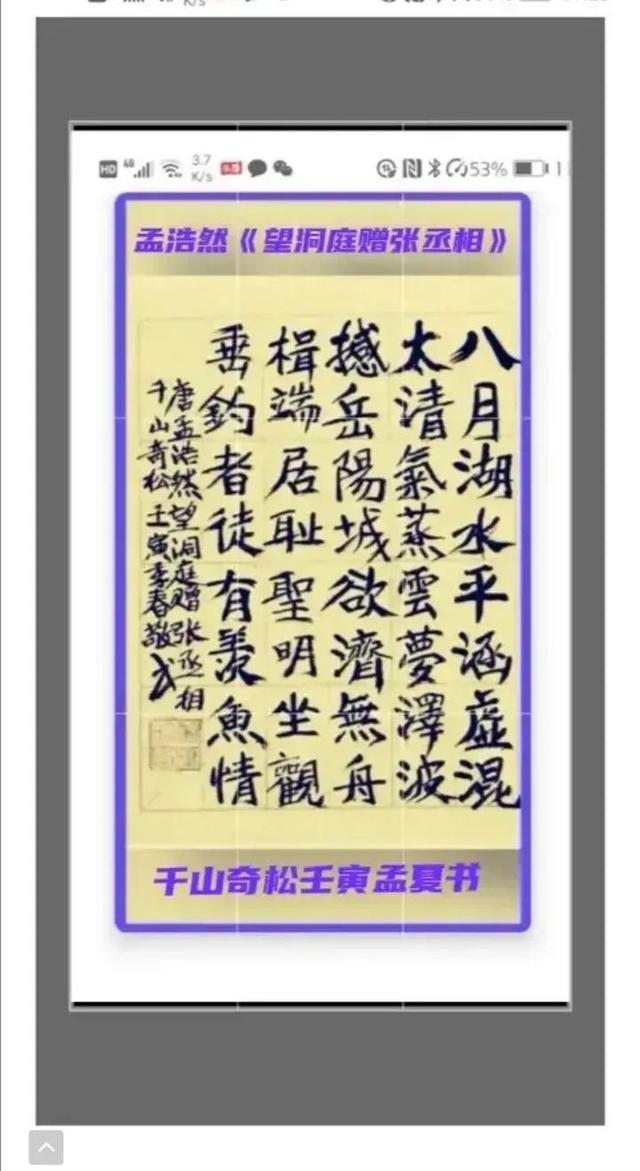 K/s
HD 4G 3.7 K/s 53% 1
孟浩然《望洞庭赠张丞相》
八月湖水平涵虚混
太清氣蒸雲夢澤波
撼岳陽城欲濟無舟
楫端居耻聖明坐觀
垂釣者徒有羨魚情
唐孟浩然望洞庭赠张丞相
千山奇松壬寅季春敬书
千山奇松壬寅孟夏书